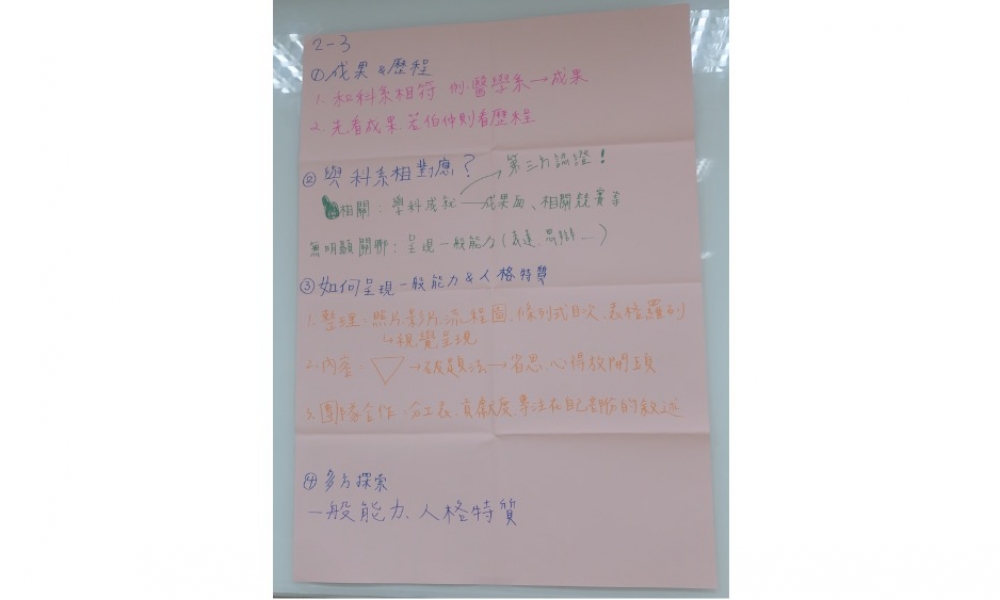 2-3
①成果&歷程
1. 和科系相符 例:醫學系→成果
2. 先看成果.若伯仲則看歷程
②與科系相對應?
第三方認證!
相關:學科成就—成果為、相關競賽等
無明顯關聯:呈現一般能力(表達.思辯…)
③如何呈現一般能力&人格特質
1.整理:照片.影片.流程圖、條列式目次、表格羅列
↳視覺呈現
2.內容:▽→破題法→省思、心得放開頭
3.團隊合作:分工表.貢獻度.專注在自己部份的敘述
④多方探索
一般能力、人格特質